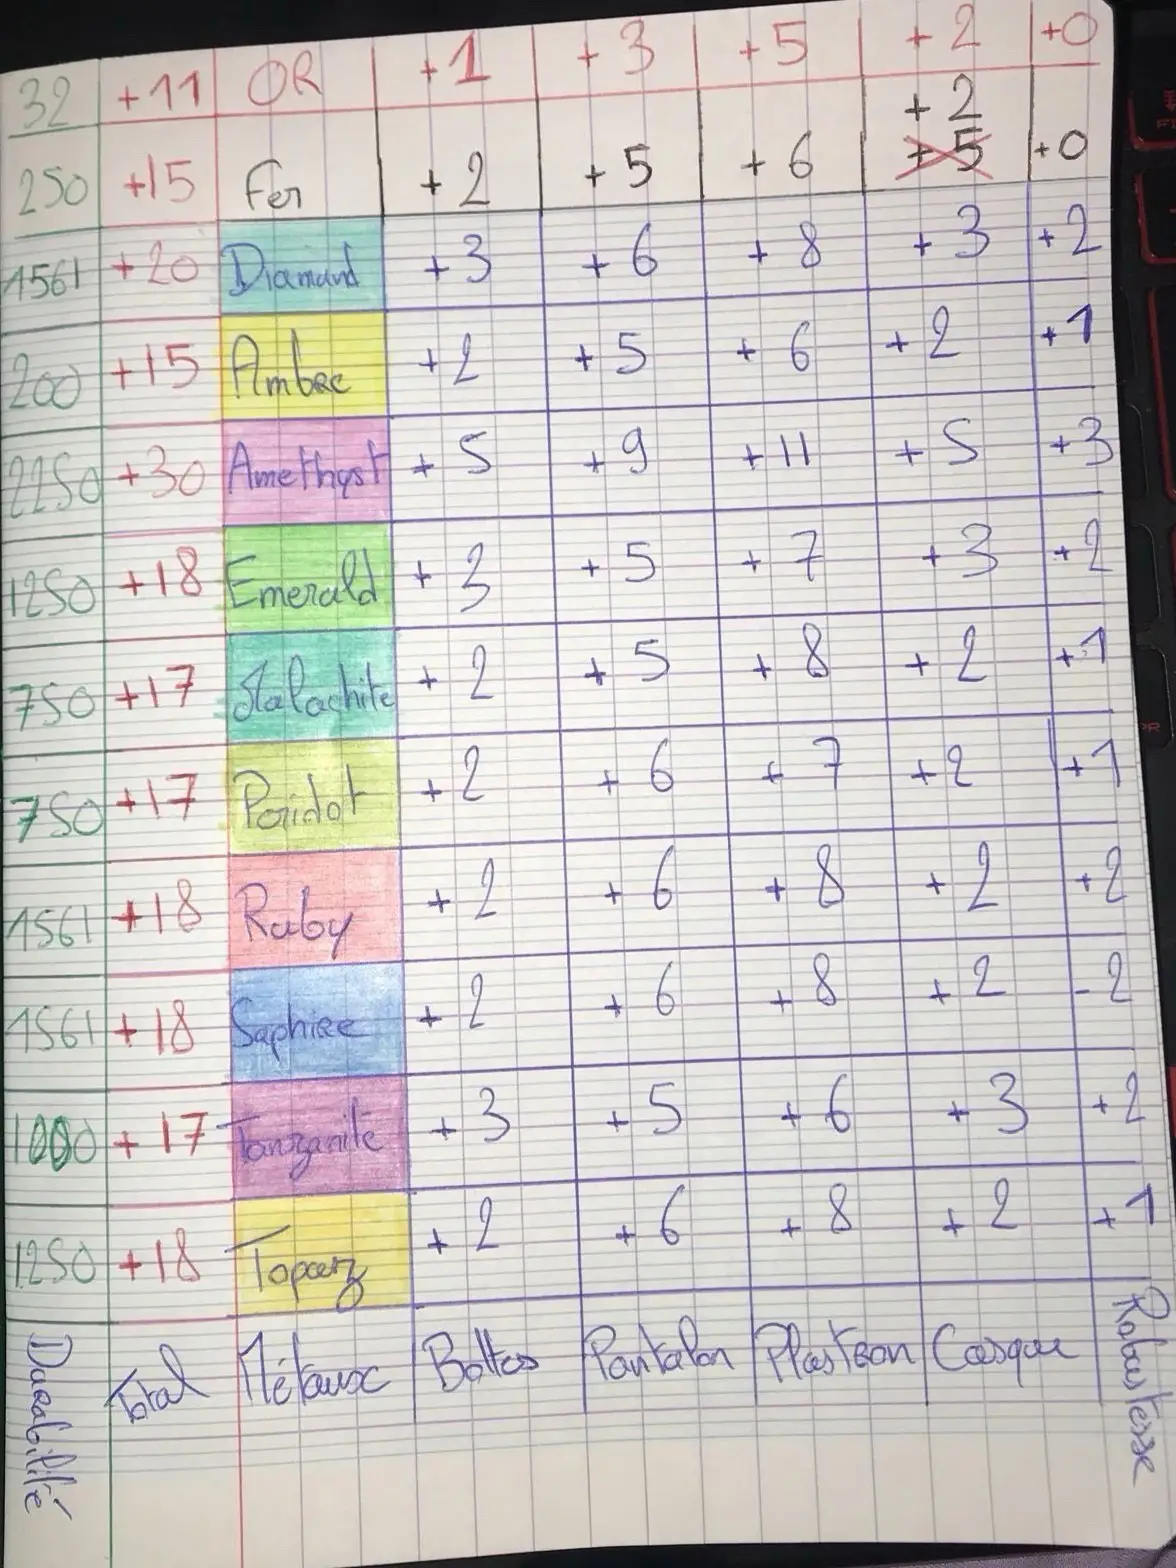 32 +11 OR +1 +3 +5 +2 +0
+2
250 +15 Fer +2 +5 +6 +5 +0
1561 +20 Diamand +3 +6 +8 +3 +2
200 +15 Ambre +2 +5 +6 +2 +1
2250 +30 Amethyst +5 +9 +11 +5 +3
1250 +18 Emerald +3 +5 +7 +3 +2
750 +17 Malachite +2 +5 +8 +2 +1
750 +17 Peridot +2 +6 +7 +2 +1
1561 +18 Ruby +2 +6 +8 +2 +2
1561 +18 Saphire +2 +6 +8 +2 -2
1000 +17 Tanzanite +3 +5 +6 +3 +2
1250 +18 Topaz +2 +6 +8 +2 +1
Durabilité Total Métaux Bottes Pantalon Plastron Casque Robustesse